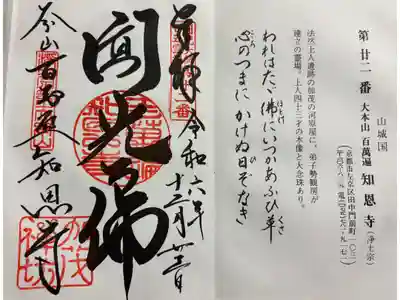 山城国
第廿一番 大本山 百萬遍 知恩寺 (浄土宗)
京都市左京区田中門前町一〇三
法然上人遺跡の加茂の河原屋に、弟子勢観房が
建立の霊場。上人四十三才の木像と大念珠あり。
われはたゞ佛にいつかあふひ草
心のつまにかけぬ日ぞなき
奉拝 令和六年
圓光大師
本山百万遍知恩寺